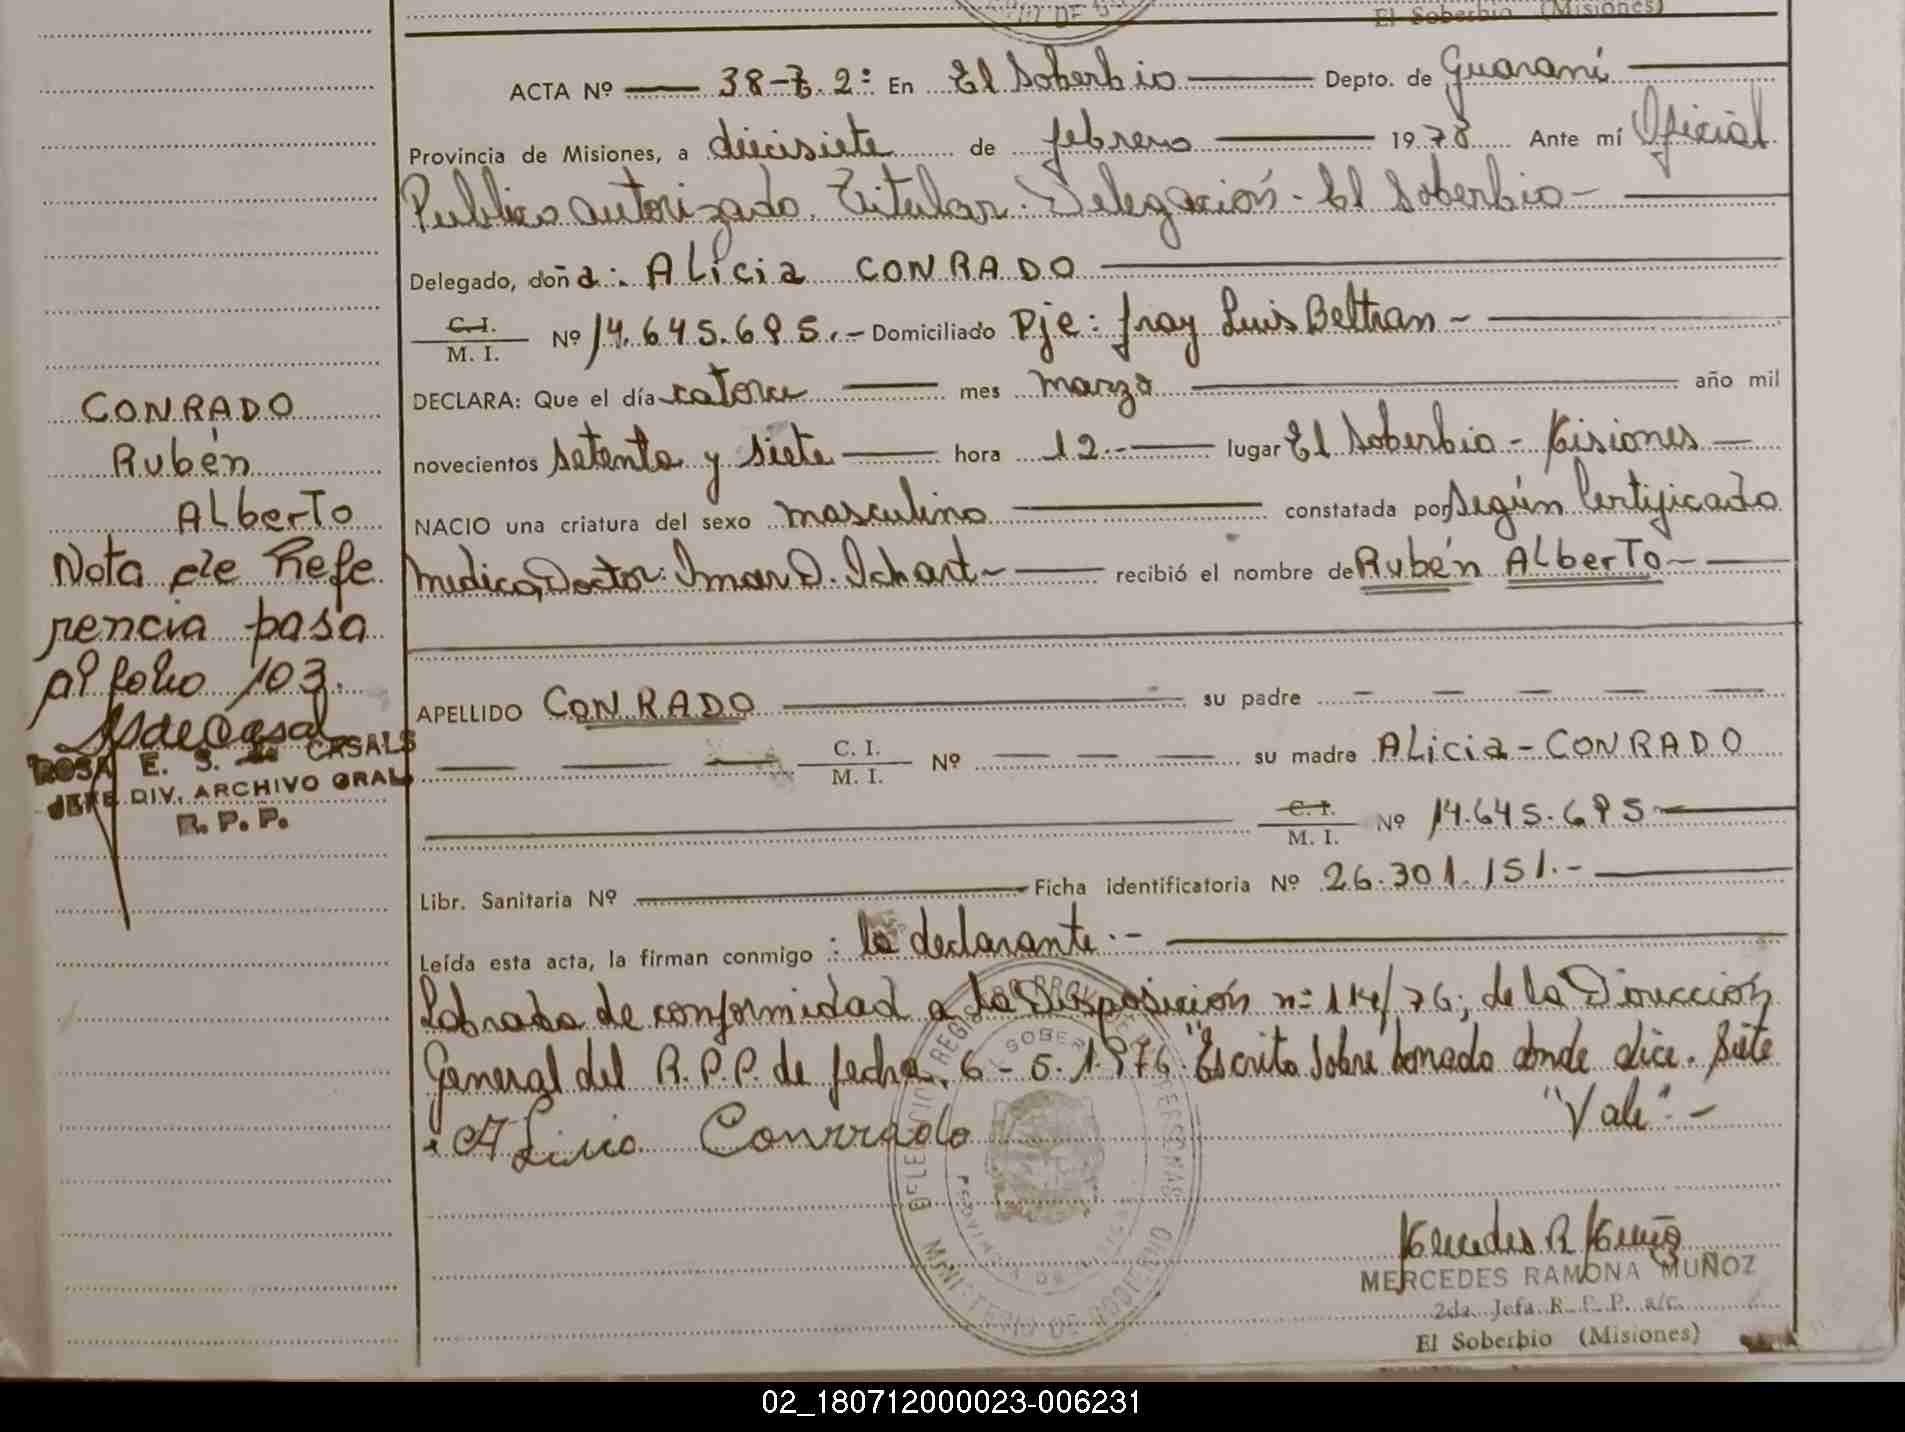 El Soberbio (Misiones)
ACTA Nº 38-T. 2: En El Soberbio Depto. de Guaraní
Provincia de Misiones, a diecisiete de febrero 1978 Ante mí Oficial
Publico autorizado. Titular. Delegación - El Soberbio -
Delegado, doña: Alicia CONRADO
C. I.
M. I. Nº 14.645.695.- Domiciliado Pje: fray Luis Beltran -
DECLARA: Que el día catorce mes marzo año mil
novecientos setenta y siete hora 12.- lugar El Soberbio - Misiones
NACIO una criatura del sexo masculino constatada por Según Certificado
Medico, Doctor: Imar D. Ichart - recibió el nombre de Rubén Alberto -
APELLIDO CONRADO su padre
C. I.
M. I. Nº su madre Alicia - CONRADO
C. I.
M. I. Nº 14.645.695
Libr. Sanitaria Nº Ficha identificatoria Nº 26.301.151.-
Leída esta acta, la firman conmigo: la declarante.-
Labrada de conformidad a la Disposición nº 114/76; de la Dirección
General del R.P.P. de fecha, 6-5.1.976. "Escrito sobre borrado donde dice. Siete
"Vale".-
Alicia Conrrado
Mercedes R Muño
MERCEDES RAMONA MUÑOZ
2da. Jefa R. P. P. a/c.
El Soberbio (Misiones)
CONRADO
Rubén
Alberto
Nota de Refe
rencia pasa
al folio 103.
ROSA E. S. de CASALS
JEFE DIV. ARCHIVO GRAL
R. P. P.
02_180712000023-006231